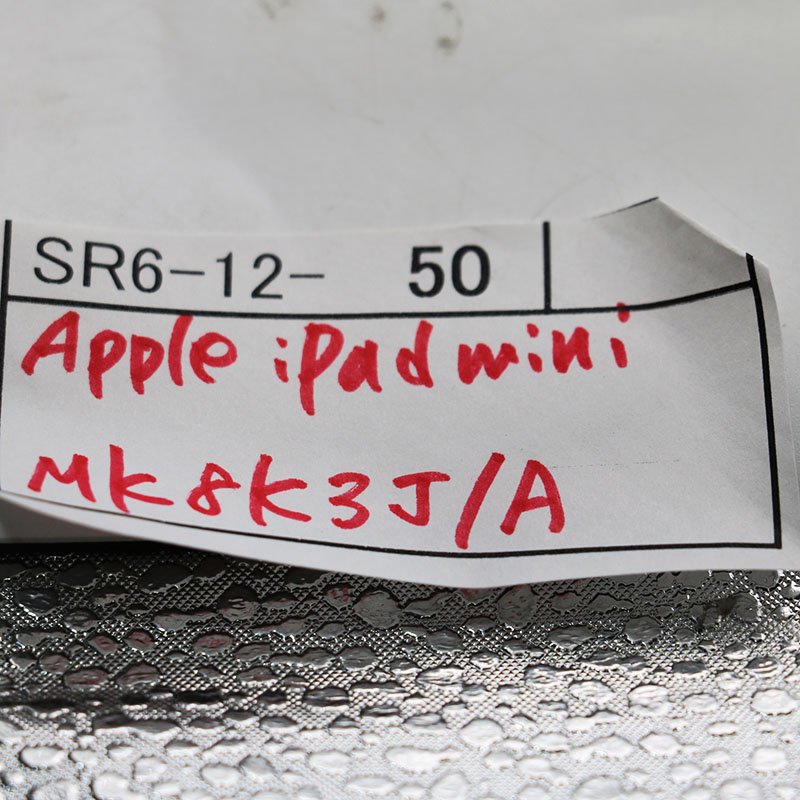 SR6-12- 50
Apple iPad mini
MK8K3J/A